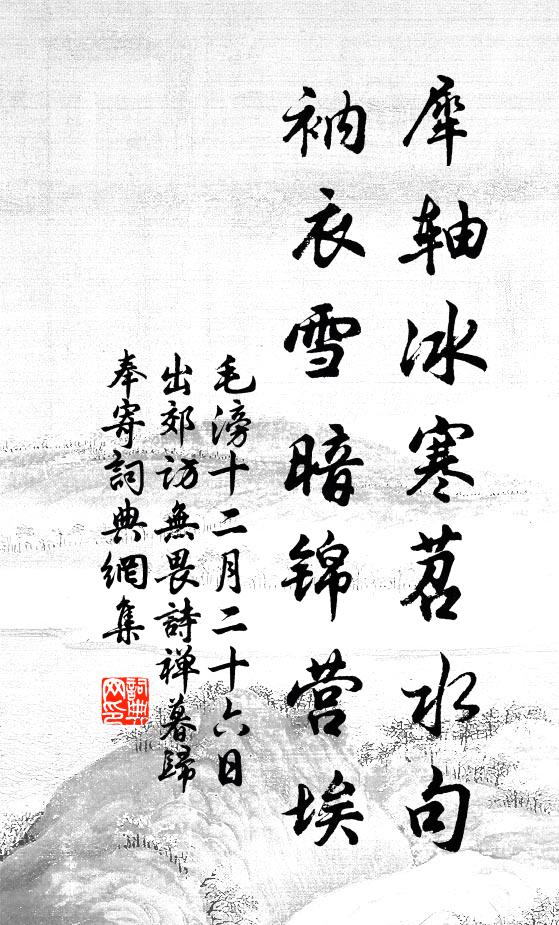 犀轴冰寒苕水句
衲衣雪暗锦营埃
毛滂十二月二十六日
出郊访無畏詩禅暮歸
奉寄詞典網集
詞典网印